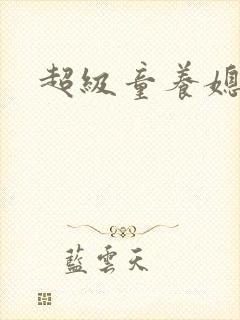 超級童養媳
藍雲天